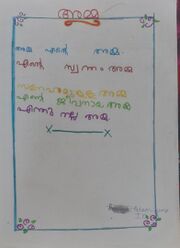 അമ്മ
അമ്മ എന്റെ അമ്മ
എന്റെ സ്വന്തം അമ്മ
സ്നേഹമുള്ള അമ്മ
എന്റെ ജീവനായ അമ്മ
എന്തു നല്ല അമ്മ